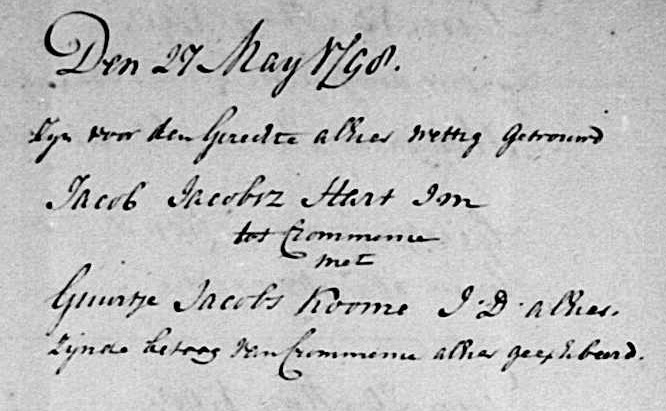 Den 27 May 1798.
Zijn voor den Gerechte alhier wettig getrouwd
Jacob Jacobsz Hart J m
tot Crommenie
met
Guurtje Jacobs Koome J: D: alhier.
zijnde betoog van Crommenie alhier geexhibeerd.